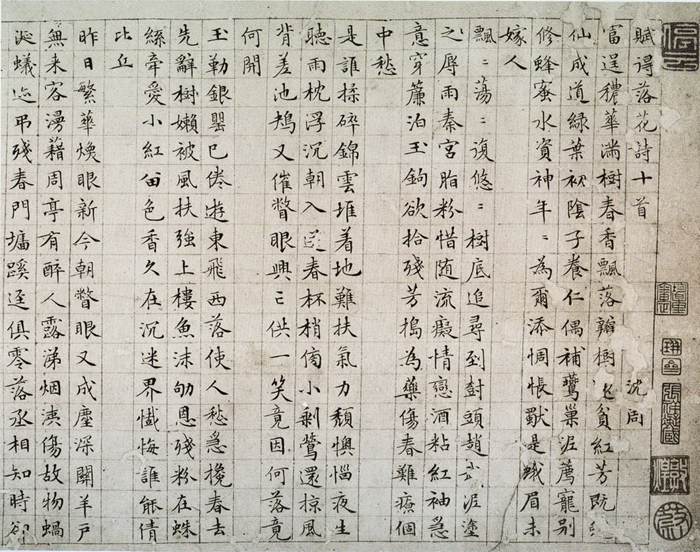 賦得落花詩十首 沈周
富逞穠華滿樹春香飄落瓣樹貧紅芳既
仙成道綠葉初陰子養仁偶補鶯巢泥薦寵別
修蜂蜜水資神年〻為爾添惆悵獸是蛾眉未
嫁人
飄〻蕩〻復悠〻樹底追尋到樹頭趙武泥塗
之辱雨秦宮脂粉惜随流癡情戀酒粘紅袖急
意穿簾泊玉鉤欲拾殘芳搗為藥傷春難療個
中愁
是誰揉碎錦雲堆着地難扶氣力頹懊惱夜生
聽雨枕浮沉朝入送春杯稍傍小剝鶯還掠風
背差池鳩又催瞥眼興亡供一笑竟因何落竟
何開
玉勒銀罌已倦遊東飛西落使人愁急攙春去
先辭樹嬾被風扶強上樓魚沫劬恩殘粉在蛛
絲牽愛小紅留色香久在沉迷界懺悔誰能倩
比丘
昨日繁華煥眼新今朝瞥眼又成塵深關羊戶
無来客漫藉周亭有醉人露涕烟洟傷故物蝸
涎蟻迹弔殘春門墻蹊徑俱零落丞相知時卻